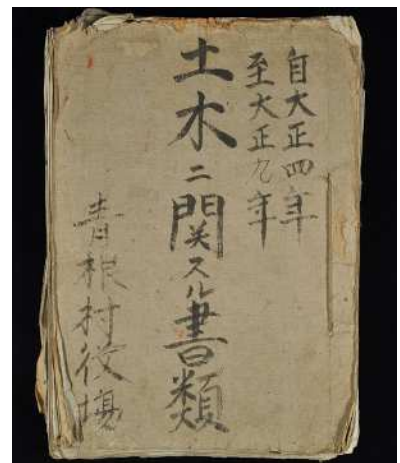 自大正四年
至大正九年
土木ニ関スル書類
青根村役場